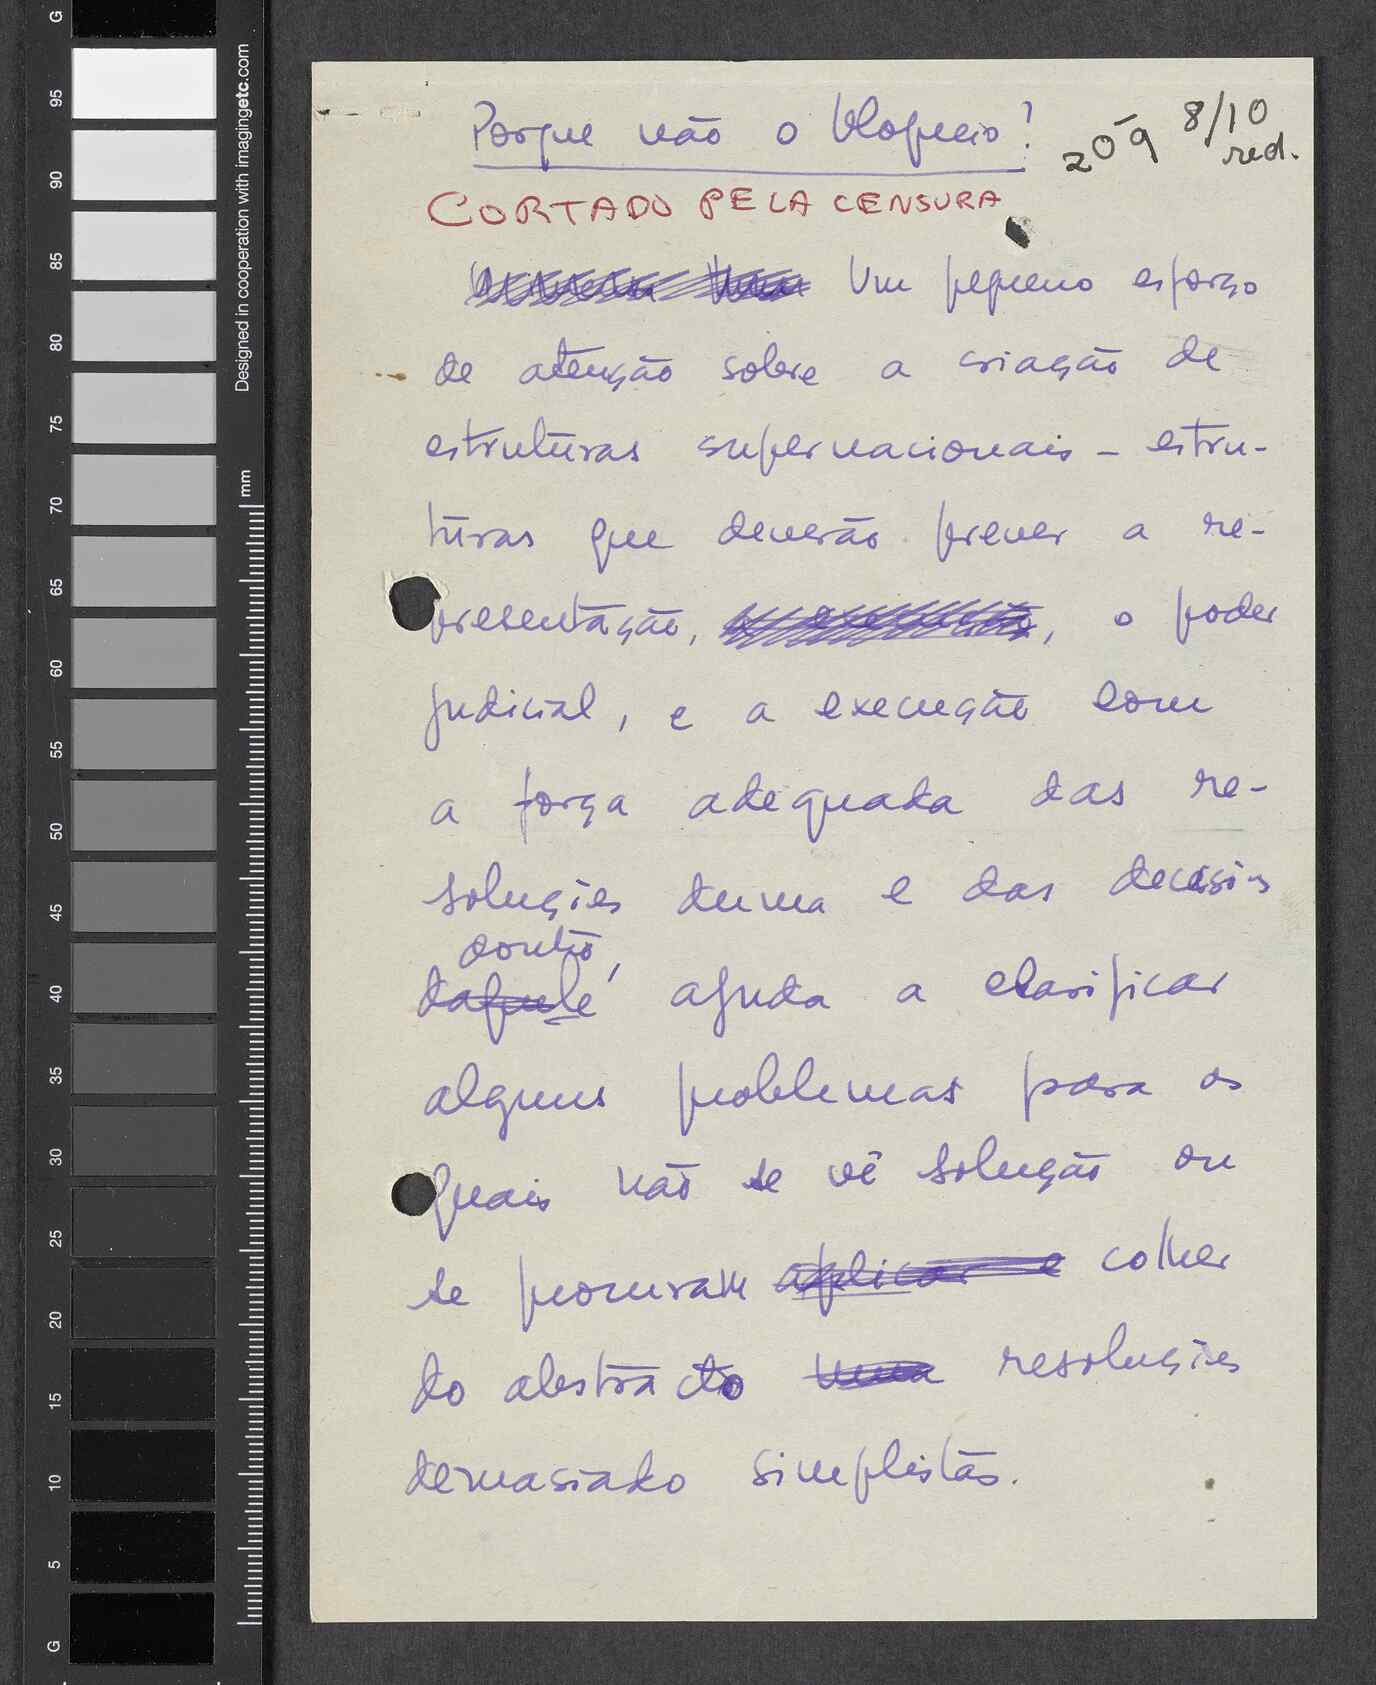 Porque não o bloqueio?
209 8/10
red.
CORTADO PELA CENSURA
Um pequeno esforço
de atenção sobre a criação de
estruturas supernacionais - estru-
turas que deverão prever a re-
presentação, , o poder
judicial, e a execução com
a força adequada das re-
soluções duma e das decisões
doutro,
daquele ajuda a clarificar
alguns problemas para os
quais não se vê solução ou
se procuram aplicar e colher
do abstracto uma resoluções
demasiado simplistas.
G
95
90
85
80
75
70
65
60
55
50
45
40
35
30
25
20
15
10
5
G
mm
Designed in cooperation with imagingetc.com